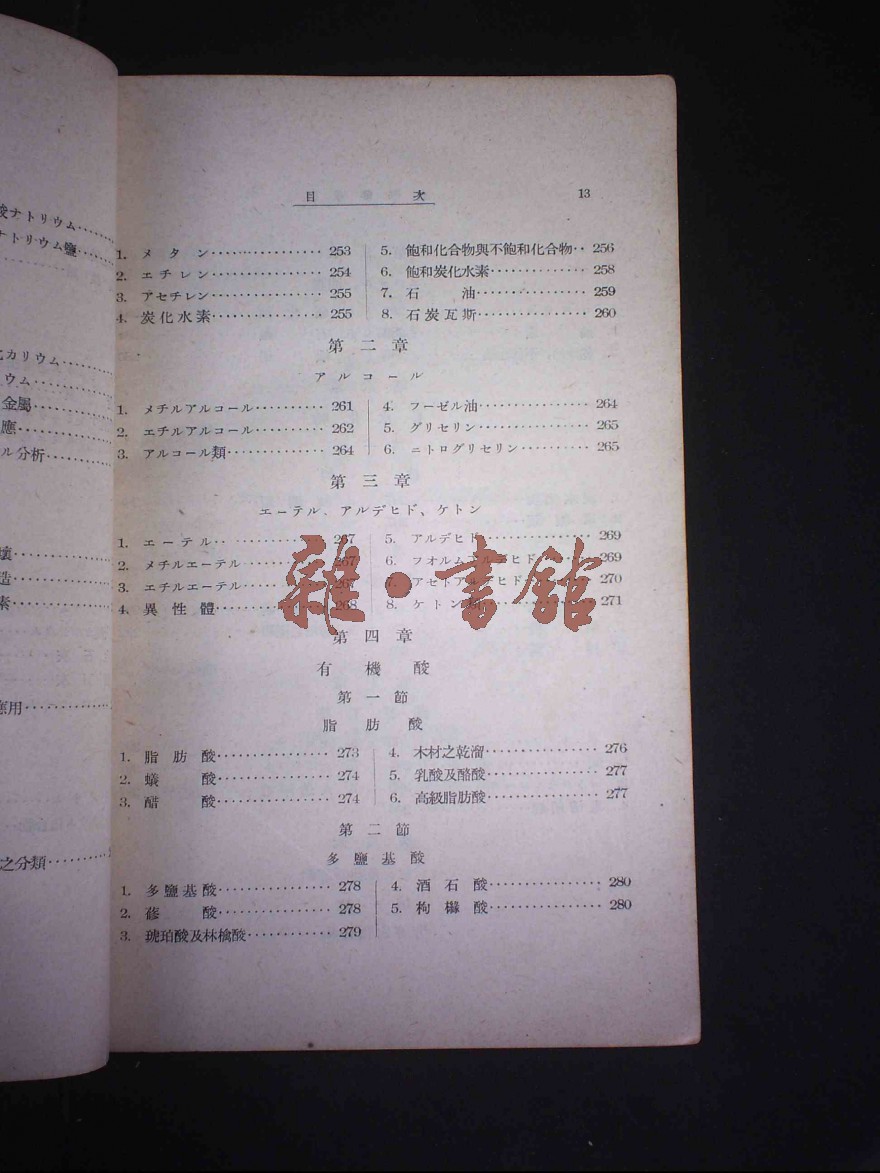 酸ナトリウム‥‥
ナトリウム鹽‥‥
カリウム‥‥
ウム‥‥
金屬‥‥
應‥‥
ル分析‥‥
壞‥‥
造‥‥
素‥‥
應用‥‥
之分類‥‥
目 次 13
1. メタン‥‥‥‥ 253
2. エチレン‥‥‥‥ 254
3. アセチレン‥‥‥‥ 255
4. 炭化水素‥‥‥‥ 255
5. 飽和化合物與不飽和化合物‥ 256
6. 飽和炭化水素‥‥‥‥ 258
7. 石油‥‥‥‥ 259
8. 石炭瓦斯‥‥‥‥ 260
第二章
アルコール
1. メチルアルコール‥‥‥‥ 261
2. エチルアルコール‥‥‥‥ 262
3. アルコール類‥‥‥‥ 264
4. フーゼル油‥‥‥‥ 264
5. グリセリン‥‥‥‥ 265
6. ニトログリセリン‥‥‥‥ 265
第三章
エーテル、アルデヒド、ケトン
1. エーテル‥‥‥‥ 267
2. メチルエーテル‥‥‥‥ 267
3. エチルエーテル‥‥‥‥ 267
4. 異性體‥‥‥‥ 268
5. アルデヒド‥‥‥‥ 269
6. フオルムアルデヒド‥‥‥‥ 269
7. アセトアルデヒド‥‥‥‥ 270
8. ケトン‥‥‥‥ 271
雜・書館
第四章
有機酸
第一節
脂肪酸
1. 脂肪酸‥‥‥‥ 273
2. 蟻酸‥‥‥‥ 274
3. 醋酸‥‥‥‥ 274
4. 木材之乾溜‥‥‥‥ 276
5. 乳酸及酪酸‥‥‥‥ 277
6. 高級脂肪酸‥‥‥‥ 277
第二節
多鹽基酸
1. 多鹽基酸‥‥‥‥ 278
2. 蓚酸‥‥‥‥ 278
3. 琥珀酸及林檎酸‥‥‥‥ 279
4. 酒石酸‥‥‥‥ 280
5. 枸櫞酸‥‥‥‥ 280